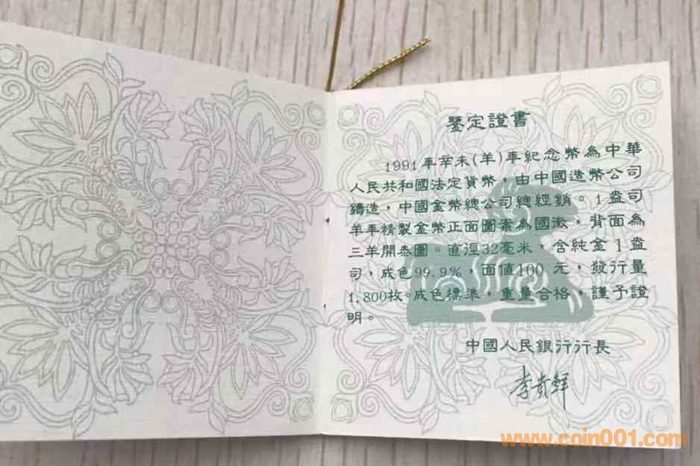 鑒定證書
1991年辛未(羊)年紀念幣為中華
人民共和國法定貨幣，由中國造幣公司
鑄造，中國金幣總公司總經銷。1盎司
羊年精製金幣正面圖案為國徽，背面為
三羊開泰圖。直徑32毫米，含純金1盎
司，成色99.9%，面值100元，發行量
1,800枚。成色標準，重量合格，謹予證
明。
中國人民銀行行長
李貴鮮
www.coin001.com